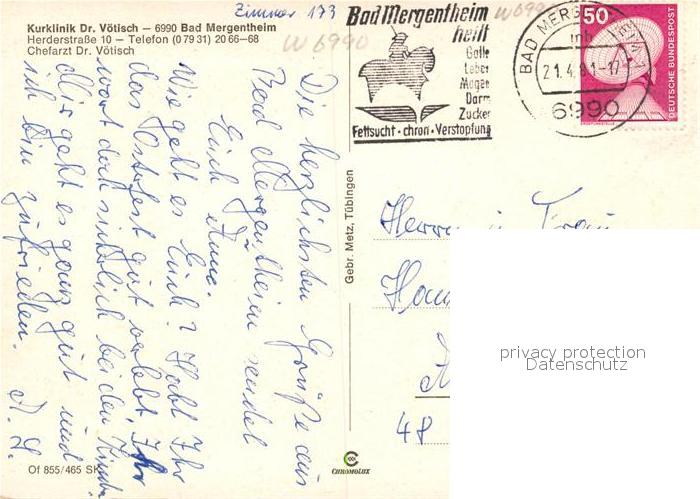 Zimmer 173
Kurklinik Dr. Vötisch – 6990 Bad Mergentheim
Herderstraße 10 – Telefon (0 79 31) 20 66–68
Chefarzt Dr. Vötisch
W 6990
Bad Mergentheim
heilt
Galle
Leber
Magen
Darm
Zucker
Fettsucht · chron · Verstopfung
W 699
BAD MERGENTHEIM
mb
21.4.81-17
6990
50
DEUTSCHE BUNDESPOST
Die herzlichsten Grüße aus
Bad Mergentheim sendet
Euch Anna.
Wie geht es Euch? Habt Ihr
das Osterfest gut verlebt, Ihr
wart doch sicherlich bei den Kindern
Mir geht es ganz gut und
ich bin zufrieden. A. H.
Gebr. Metz, Tübingen
Herrn u Frau
48
privacy protection
Datenschutz
Of 855/465 SK
CHROMOLUX